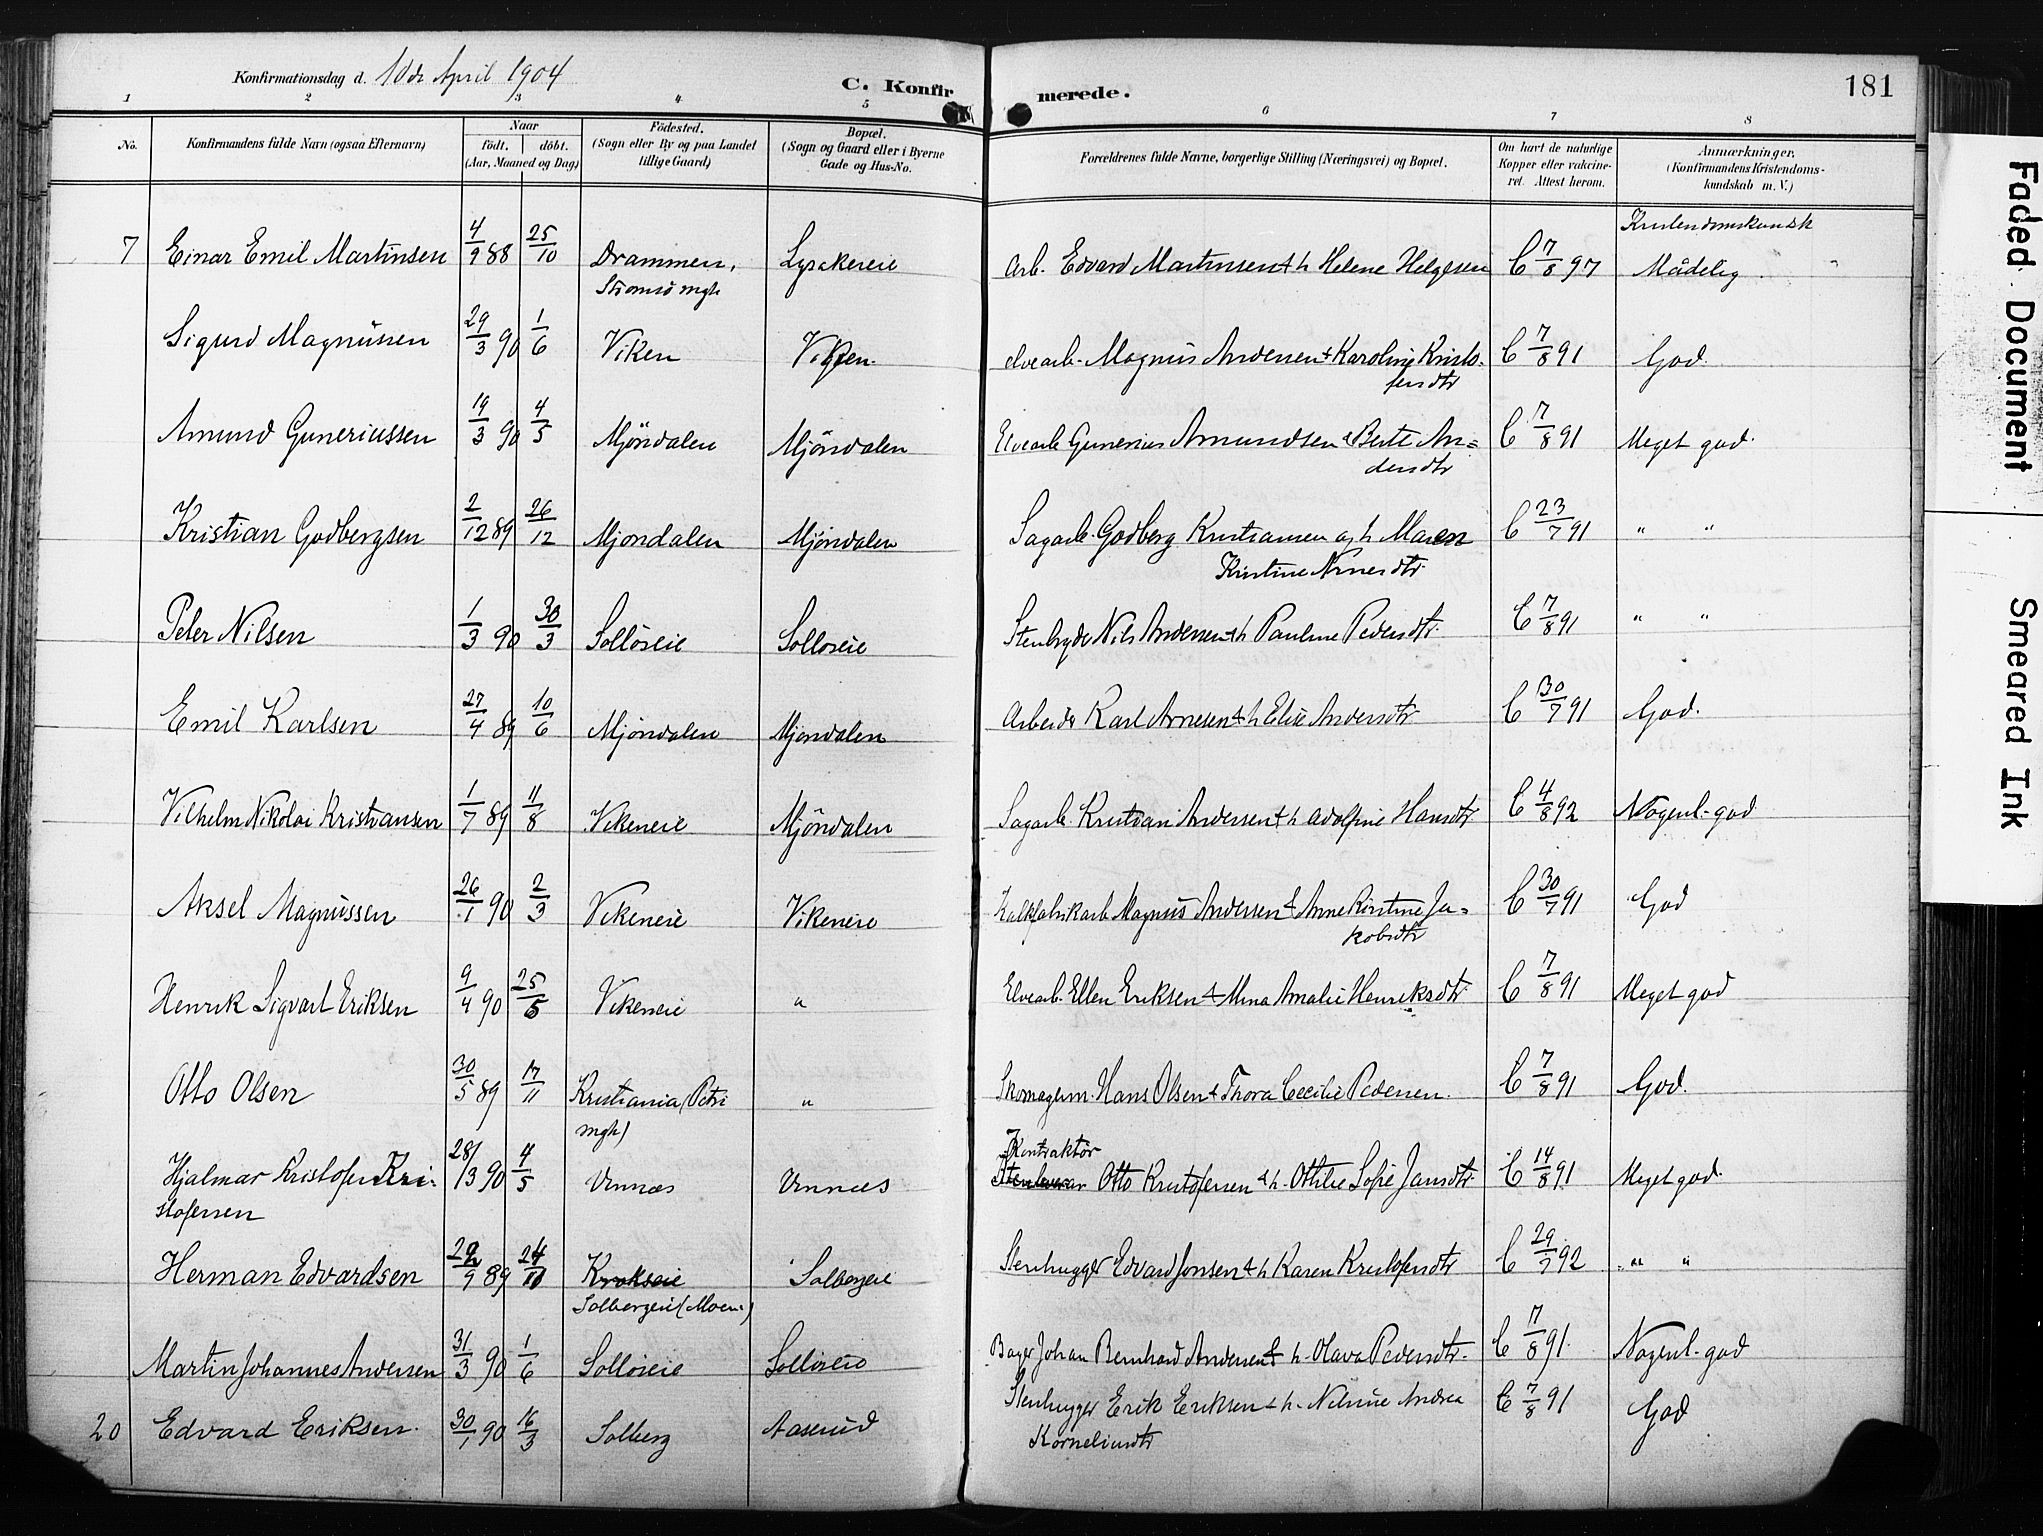 Konfirmationsdag d. 10de April 1904
C. Konfirmerede.
181
1 2 3 4 5 6 7 8
No.
Konfirmandens fulde Navn (ogsaa Efternavn)
Naar
födt. döbt.
(Aar, Maaned og Dag)
Födested.
(Sogn eller By og paa Landet
tillige Gaard)
Bopæl.
(Sogn og Gaard eller i Byerne
Gade og Hus-No.
Forældrenes fulde Navne, borgerlige Stilling (Næringsvei) og Bopæl.
Om havt de naturlige
Kopper eller vakcine-
ret. Attest herom.
Anmærkninger,
(Konfirmandens Kristendoms-
kundskab m. V.)
Kristendomskundsk
7 Einar Emil Martinsen 4/9 88 25/10 Drammen, Lysakereie Arb. Edvard Martinsen + h Helene Helgesen C 7/8 97 Mådelig
Strømsö mgh
Sigurd Magnussen 29/3 90 1/6 Viken Viken Elvearb. Magnus Andersen + Karoline Kristo-
fersdtr C 7/8 91 God.
Amund Guneriussen 19/3 90 4/5 Mjöndalen Mjöndalen Elvearb Gunerius Amundsen & Berte An=
dersdtr C 7/8 91 Meget god.
Kristian Godbergsen 2/12 89 26/12 Mjöndalen Mjöndalen Sagarb. Godberg Kristiansen og h Maren
Kristine Arnesdtr. C 23/7 91 " "
Peter Nilsen 1/3 90 30/3 Sollöseie Solloseie Stenbryder Nils Andersen + h Pauline Pedersdtr. C 7/8 91 " "
Emil Karlsen 27/4 89 10/6 Mjöndalen Mjöndalen Arbeider Karl Arnesen + h Elise Andersdtr C 30/7 91 God.
Vilhelm Nikolai Kristiansen 1/7 89 11/8 Vikeneie Mjöndalen Sagarb. Kristian Andersen + h Adolfine Hansdtr C 4/8 92 Nogenl. god
Aksel Magnussen 26/1 90 2/3 Vikeneie Vikeneie Kalkfabrikarb Magnus Andersen + Anne Kirstine Ja=
kobsdtr C 30/7 91 God
Henrik Sigvart Eriksen 9/4 90 25/5 Vikeneie " Elvearb. Ellen Eriksen + Mina Amalie Henriksdtr. C 7/8 91 Meget god
Otto Olsen 30/5 89 17/11 Kristiania (Petri
mgh) " Skomagerm. Hans Olsen + Thora Cecilie Pedersen. C 7/8 91 God.
Kontraktör
Hjalmar Kristofer Kri-
stofersen 28/3 90 4/5 Vinnæs Vinnæs Otto Kristofersen + h. Othilie Sofie Jansdtr. C 14/8 91 Meget god.
Herman Edvardsen 22/9 89 24/11 Krokseie Solbergeie Stenhugger Edvard Jonsen + h Karen Kristofersdtr C 29/7 92 " "
Solbergeie (Moen)
Martin Johannes Andersen 31/3 90 1/6 Sollöseie Sollöseie Bager Johan Bernhard Andersen & h. Olava Pedersdtr. C 7/8 91. Nogenl. god
20 Edvard Eriksen. 30/1 90 16/3 Solberg Aaserud Stenhugger Erik Eriksen + h. Nilsine Andrea
Korneliusdtr C 7/8 91 God
Faded Document
Smeared Ink